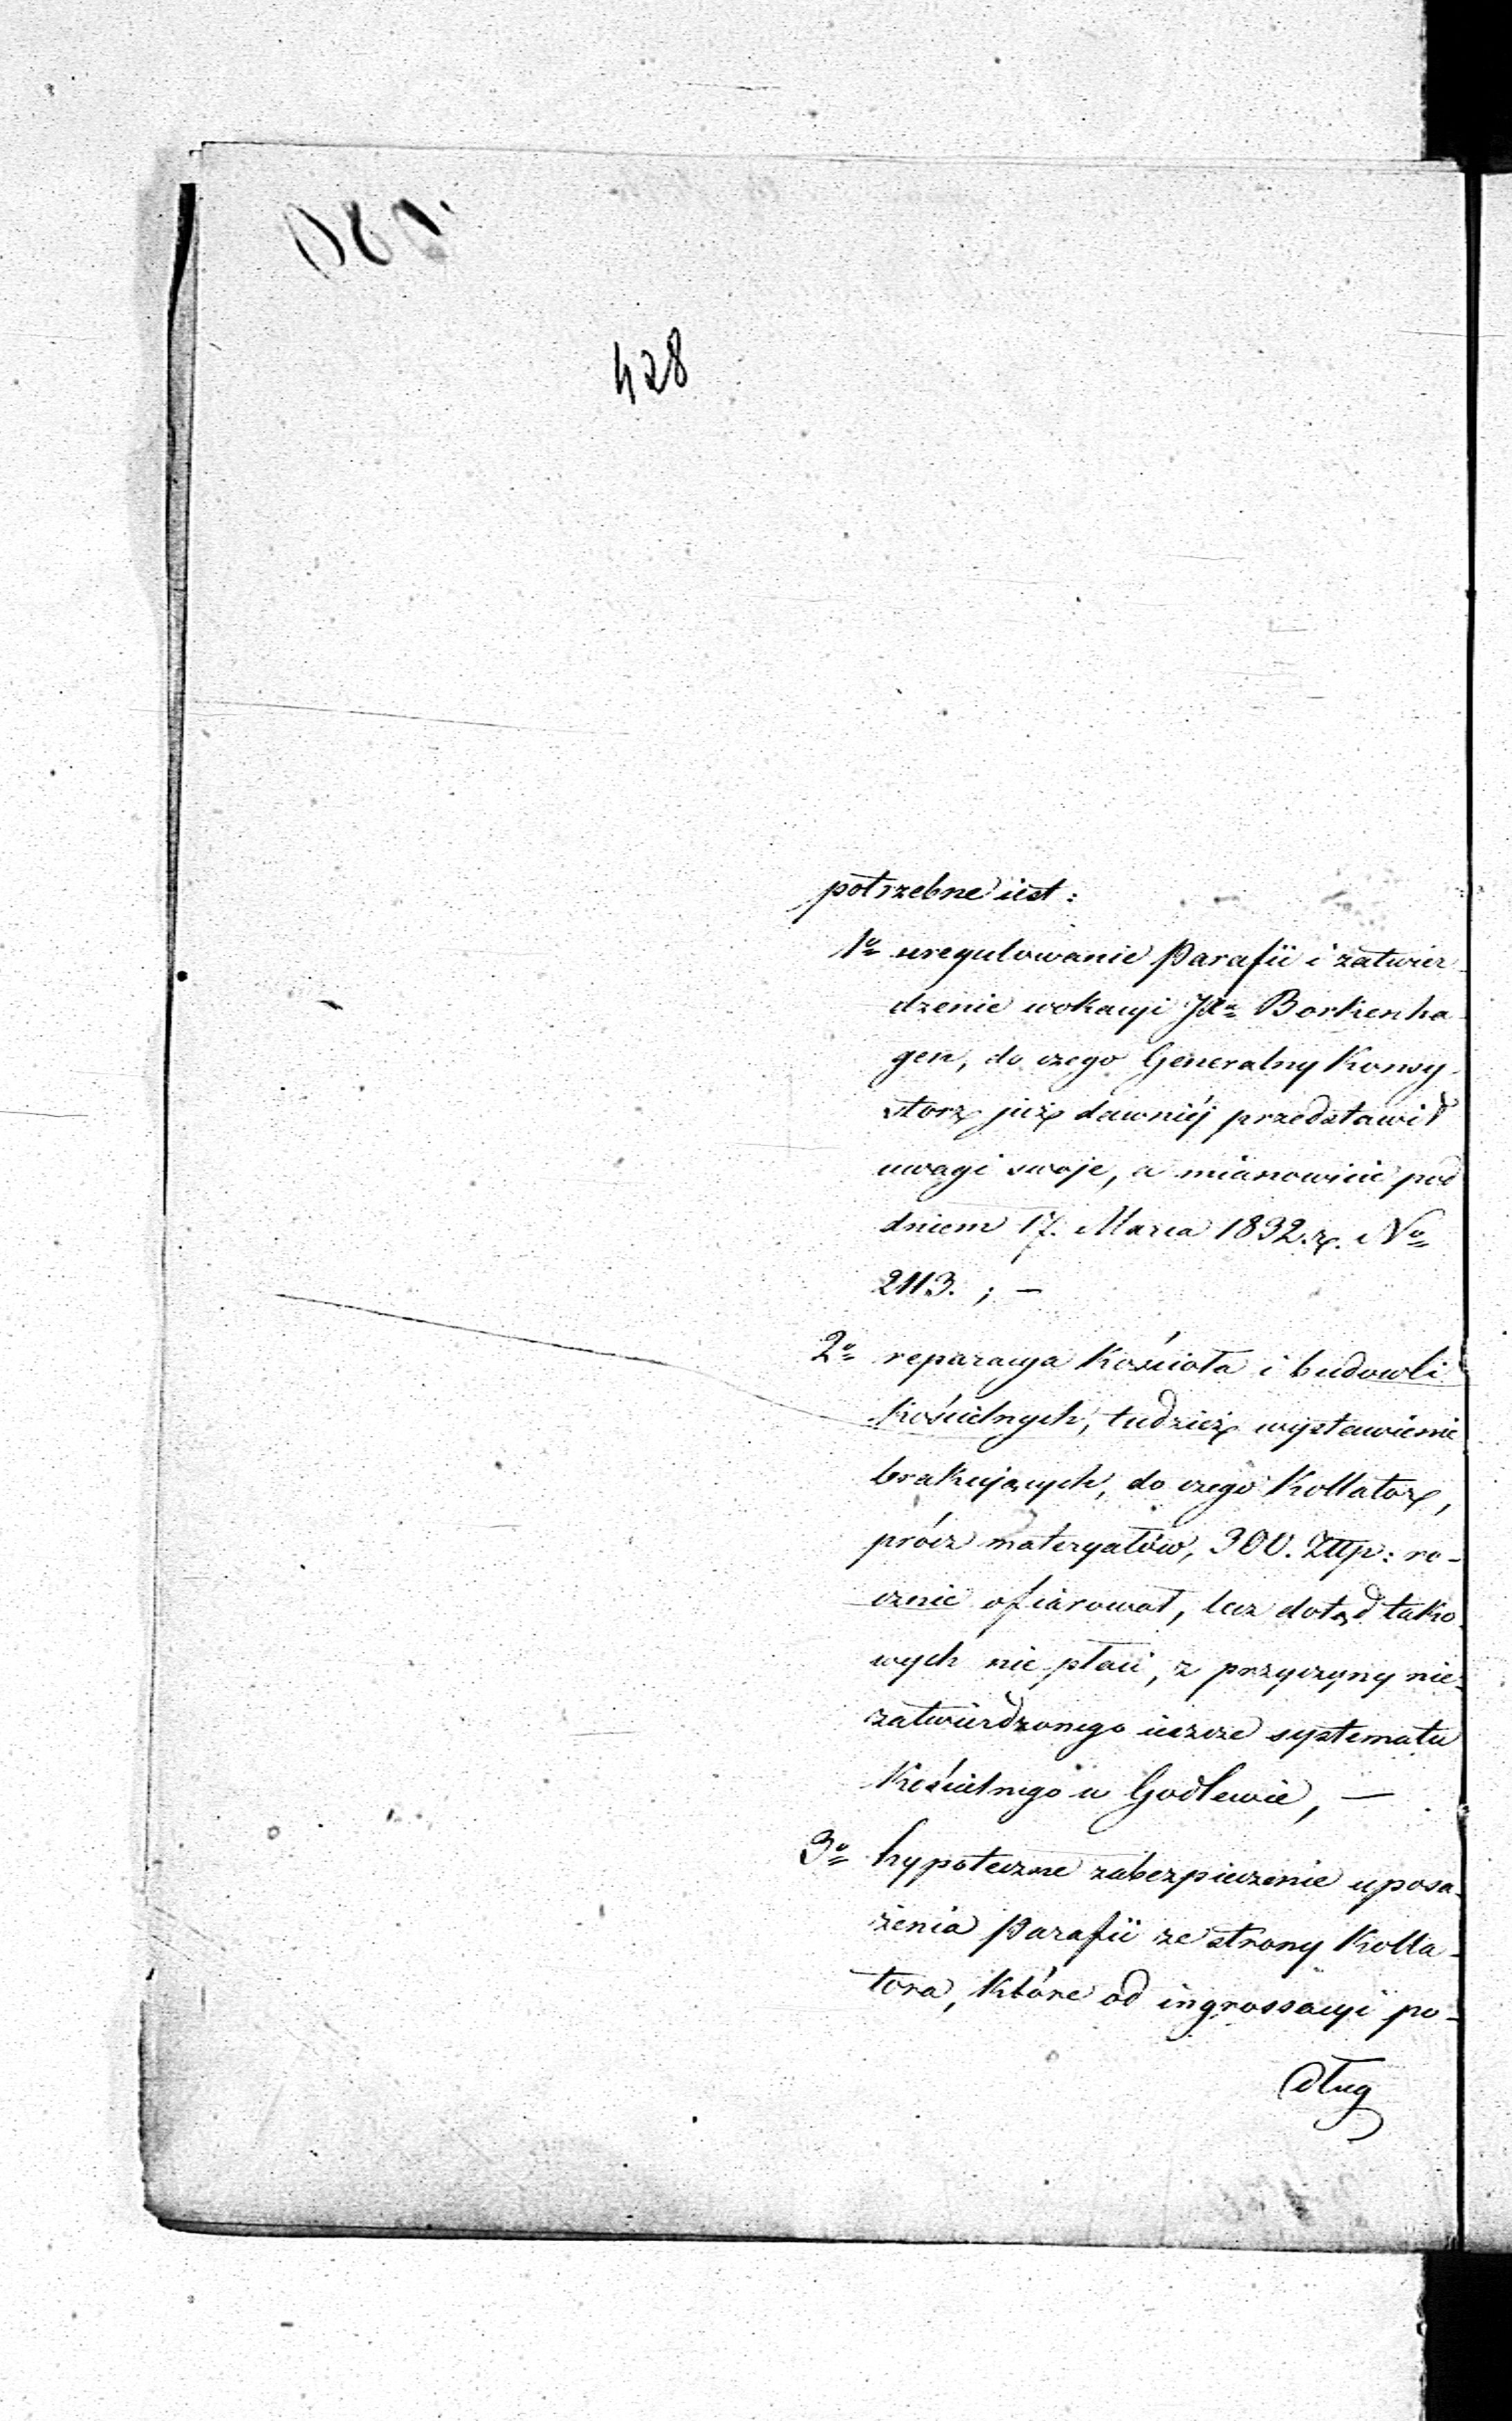 428
potrzebne iest:
1o uregulowanie Parafii i zatwier-
dzenie wokacyi Jda Borkenha-
gen, do czego Generalny Konsy-
storz już dawniéj przedstawił
uwagi swoje, a mianowicie pod
dniem 17. Marca 1832.r. No
2113.; —
2o reparacya Kościoła i budowli
Kościelnych, tudzież wystawienie
brakujących, do czego Kollator,
prócz materyałów, 300. Złłp: ro-
cznie ofiarował, lecz dotąd tako-
wych nie płaci, z przyczyny nie-
zatwierdzonego ieszcze systematu
Kościelnego w Godlewie, —
3o hypoteczne zabezpieczenie uposa-
żenia Parafii ze strony Kolla-
tora, które od ingrossacyi po-
dług